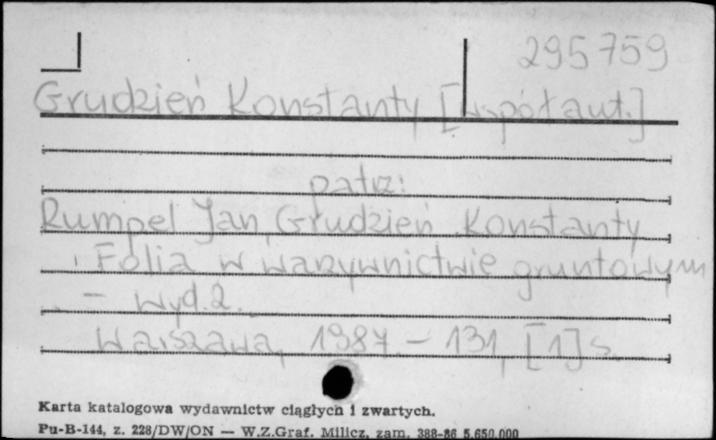 295759
Grudzień Konstanty [współaut.]
patrz:
Rumpel Jan, Grudzień Konstanty
Folia w warzywnictwie gruntowym
- wyd. 2.
Warszawa, 1987. - 131, [1] s.
Karta katalogowa wydawnictw ciągłych i zwartych.
Pu-B-144, z. 228/DW/ON — W.Z.Graf. Milicz, zam. 388-86 5.650.000